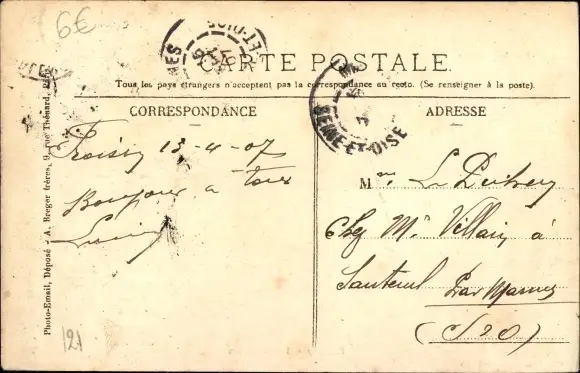 6€
CARTE POSTALE.
Tous les pays étrangers n'acceptent pas la correspondance au recto. (Se renseigner à la poste).
CORRESPONDANCE
ADRESSE
13-4-07
Bonjour a tous
M
Chez Mr Villain à
Santeuil Par Marines
(S&O)
SEINE-ET-OISE
ET-OISE
Photo-Email, Déposé - A. Breger frères, 9, rue Thénard, Paris
121